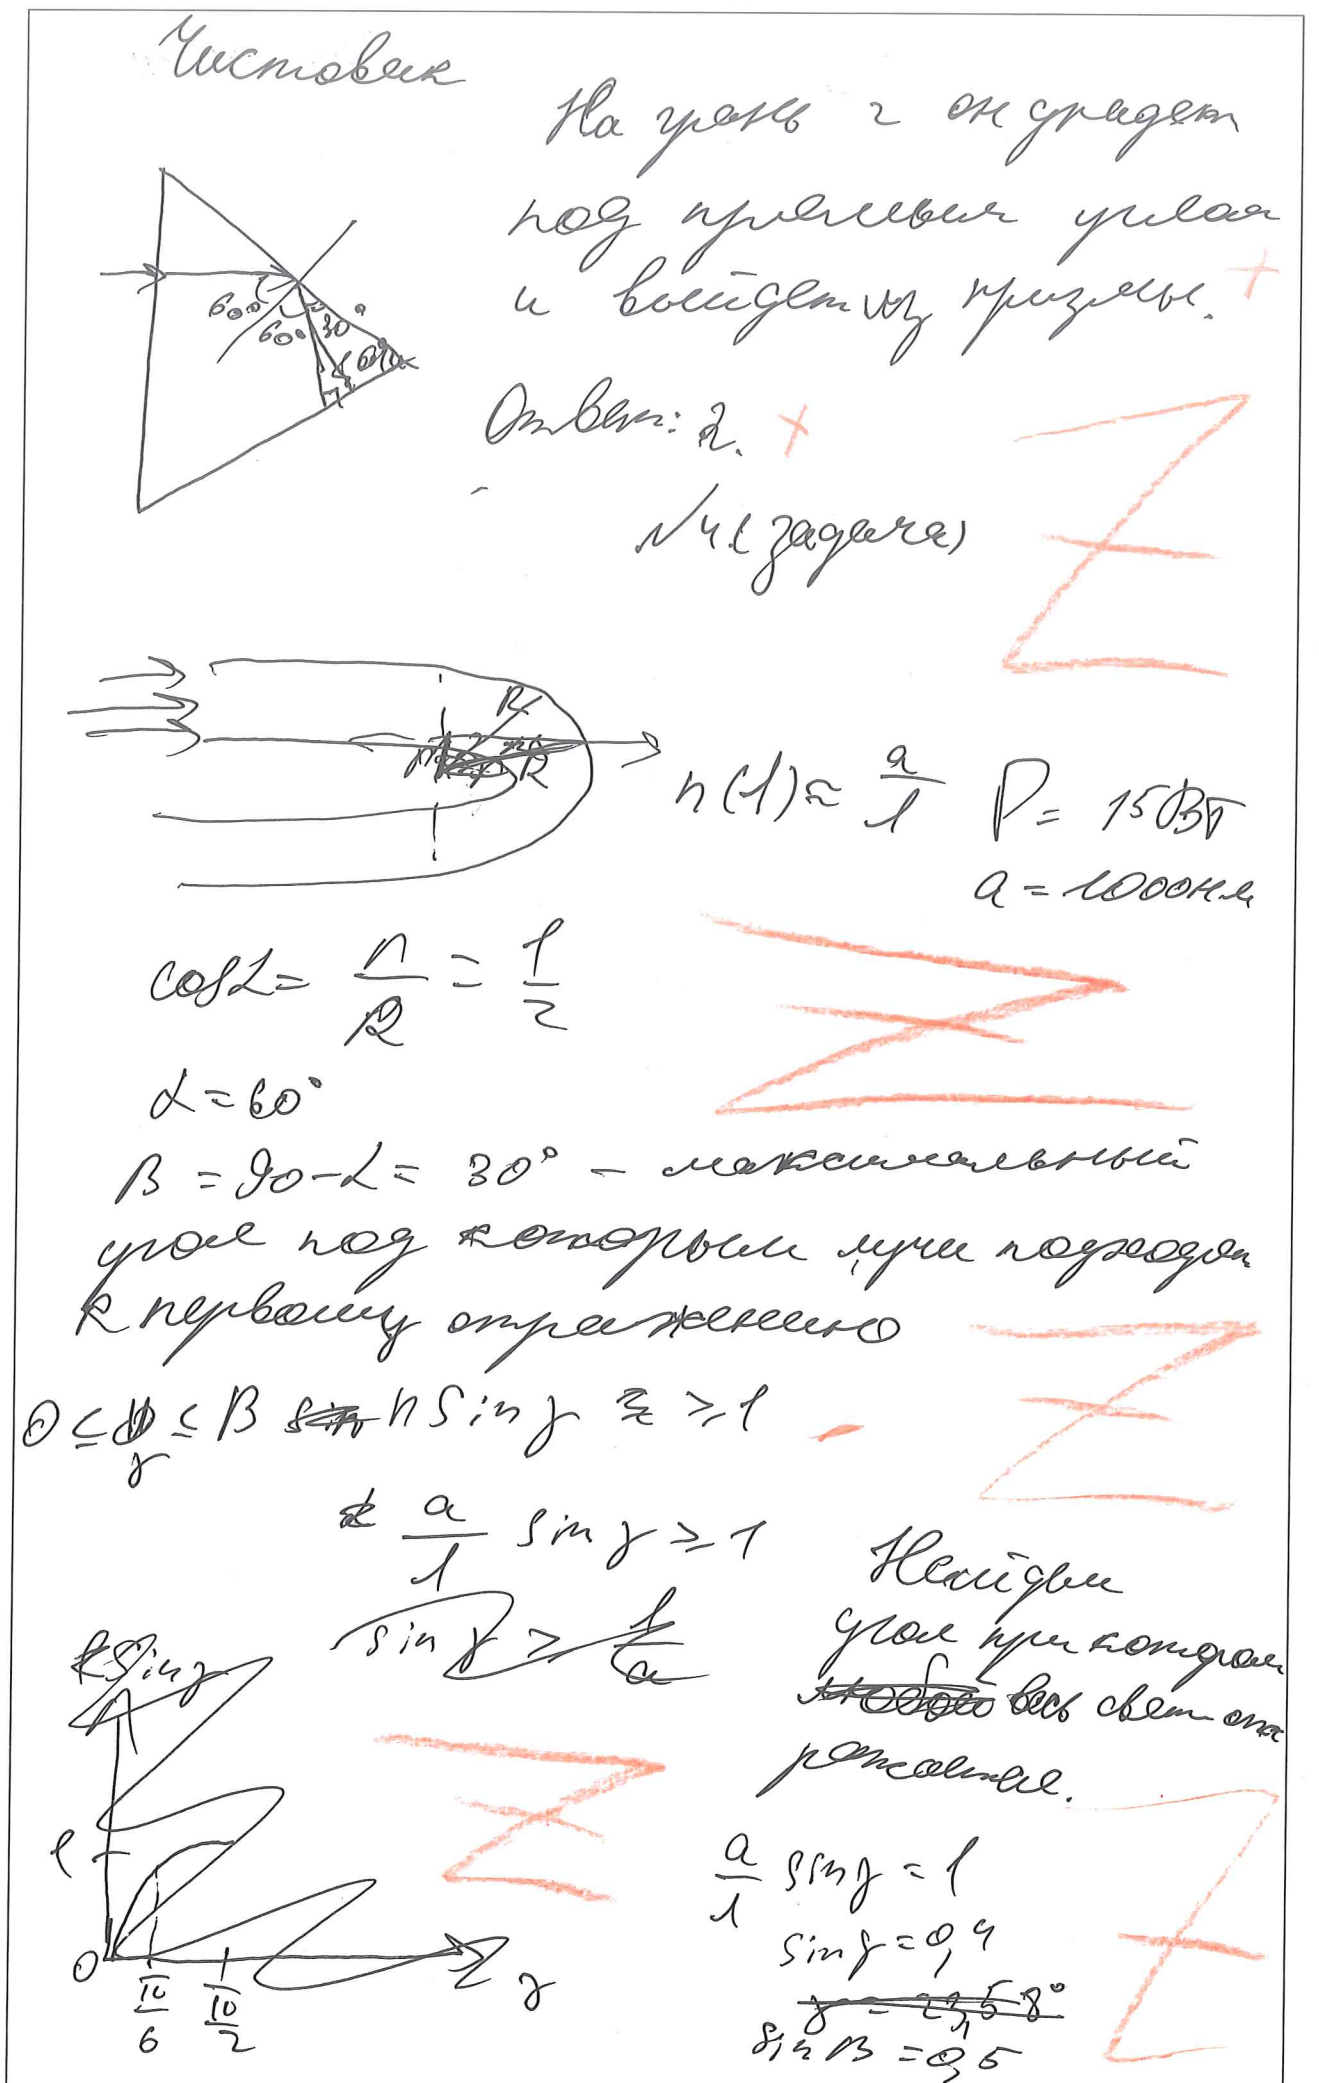 Чистовик
На грань 2 он упадет
под прямым углом
и выйдет из призмы.
60° 60° 30° 60°
Ответ: 2.
№4 (задача)
R
R
n(λ)≈ a/λ P = 15Вт
a = 1000нм
cosα = r/R = 1/2
α = 60°
β = 90-α = 30° - максимальный
угол под которым лучи подходят
к первому отражению
0 ≤ γ ≤ β n sin γ ≥ 1
a/λ sin γ ≥ 1
Найдём
угол при котором
весь свет отра
жается.
sin γ ≥ λ/a
sin γ
1
0
π/6
π/2
γ
a/λ sin γ = 1
sin γ = 0,4
γ = 23,58°
sin β = 0,5